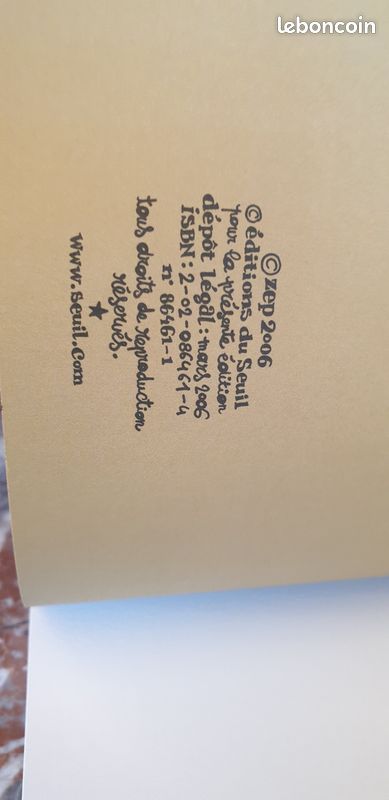 leboncoin
© Zep 2006
© éditions du Seuil
pour la présente édition
dépôt légal : mars 2006
iSBN : 2-02-086461-4
n° 86461-1
tous droits de reproduction
réservés.
★
www.seuil.com